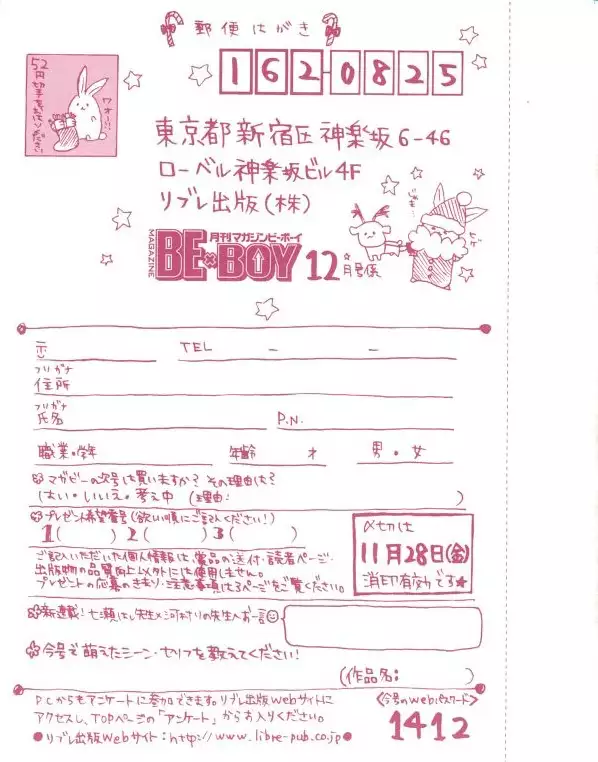 郵便はがき
162-0825
52円切手をはってください
ワオー!!
東京都新宿区神楽坂6-46
ローベル神楽坂ビル4F
リブレ出版(株)
MAGAZINE
月刊マガジンビーボーイ
BE×BOY 12月号係
ヒゲ
〒 TEL - -
フリガナ
住所
フリガナ
氏名 P.N.
職業・学年 年齢 才 男・女
マガビーの次号は買いますか? その理由は?
(はい・いいえ・考え中 (理由: )
プレゼント希望番号(欲しい順にご記入ください!)
1( ) 2( ) 3( )
〆切は
11月28日(金)
消印有効です★
ご記入いただいた個人情報は、賞品の送付・読者ページ・
出版物の品質向上以外には使用しません。
プレゼントの応募のきまり・注意事項は3ページをご覧ください。
新連載!七瀬はし先生×河村りの先生へお一言
今号で萌えたシーン・セリフを教えてください!
(作品名: )
PCからもアンケートに参加できます。リブレ出版Webサイトに
アクセスし、TOPページの「アンケート」からお入りください。
●リブレ出版Webサイト:http://www.libre-pub.co.jp●
<今号のWebパスワード>
1412